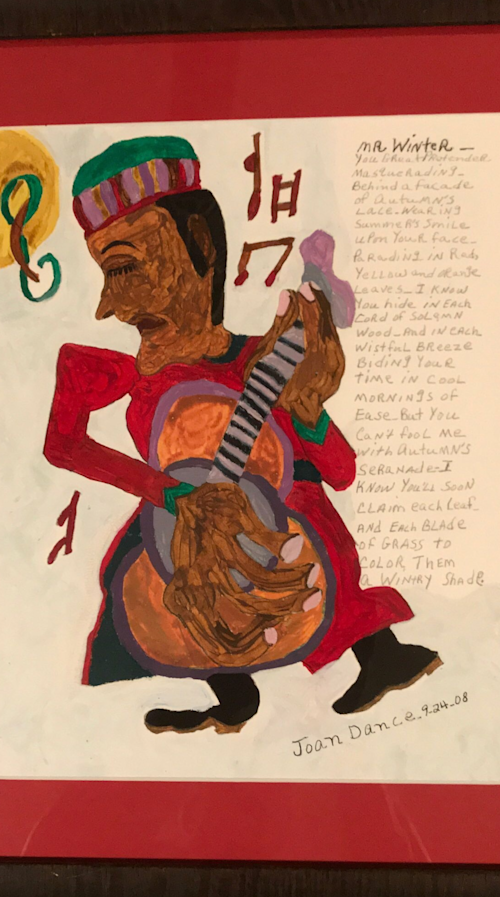 MR WINTER _
You GReat PRetender
Masqueradinġ_
Behind a facade
of AUTUMN'S
Lace_WeaRing
SUMMeR'S SMile
UPon YOUR face_
PaRading in Reds
Yellow and oRange
Leaves_I KNOW
You hide in EACh
CoRd of SoleMN
Wood_And in each
Wistful BReeze
Biding YOUR
Time in Cool
MoRNINGS of
Ease_But You
Can't fool Me
With AutuMN'S
SeRanade_I
KNOW You'll Soon
CLAiM each Leaf_
AND EACh BLADe
of GRASS to
COLOR TheM
a WintRy Shade
Joan Dance_9-24-08